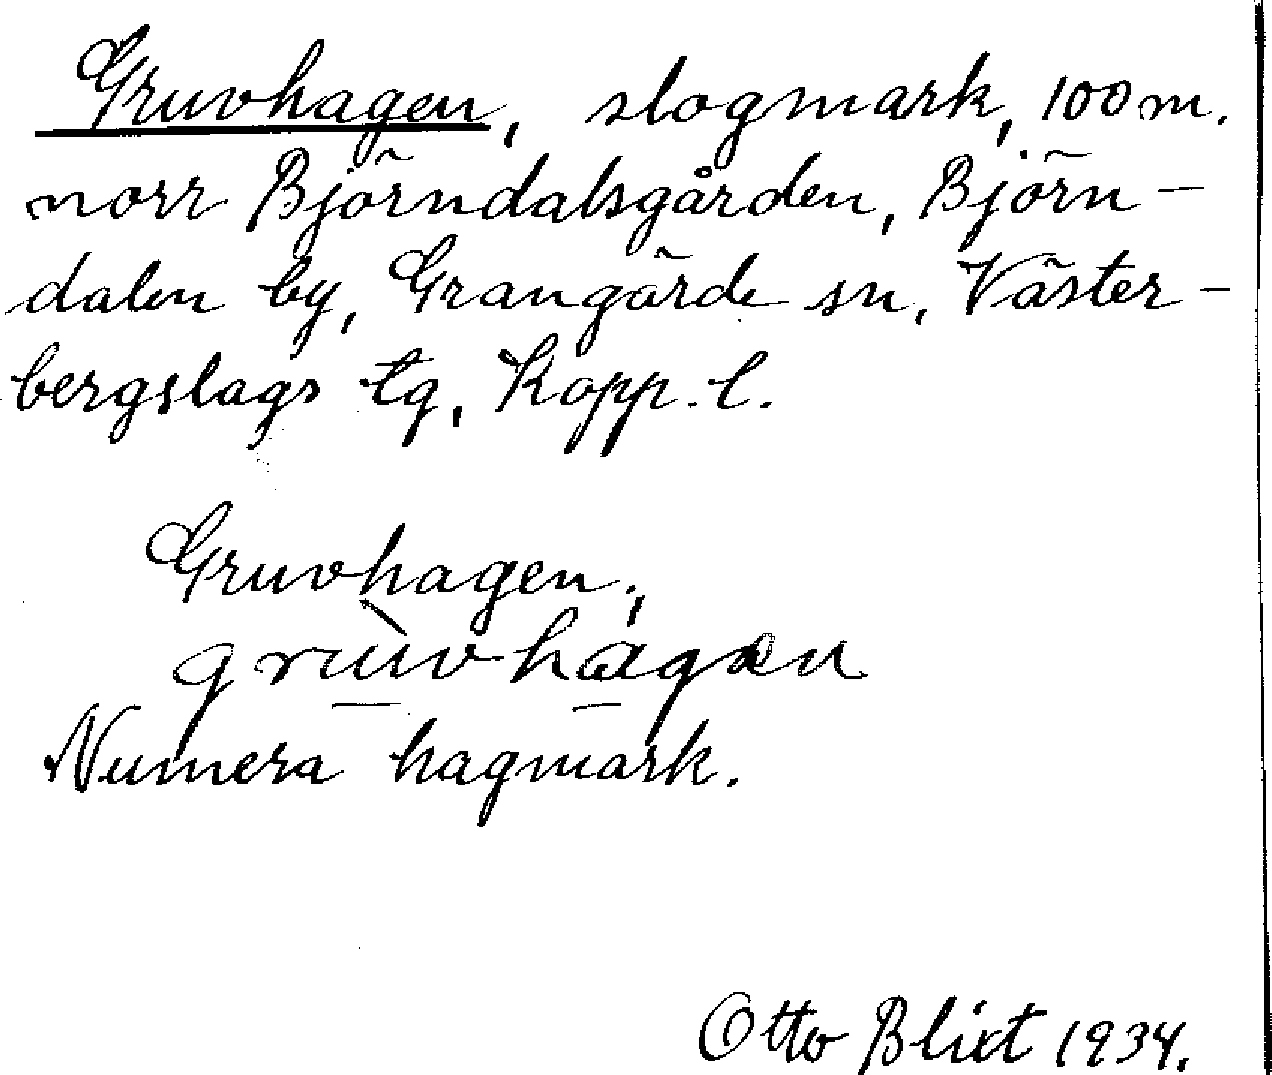 Gruvhagen, slogmark, 100 m.
norr Björndalsgården, Björn-
dalen by, Grangärde sn, Väster-
bergslags tg, Kopp. l.
Gruvhagen;
grùvhagən
Numera hagmark.
Otto Blixt 1934.